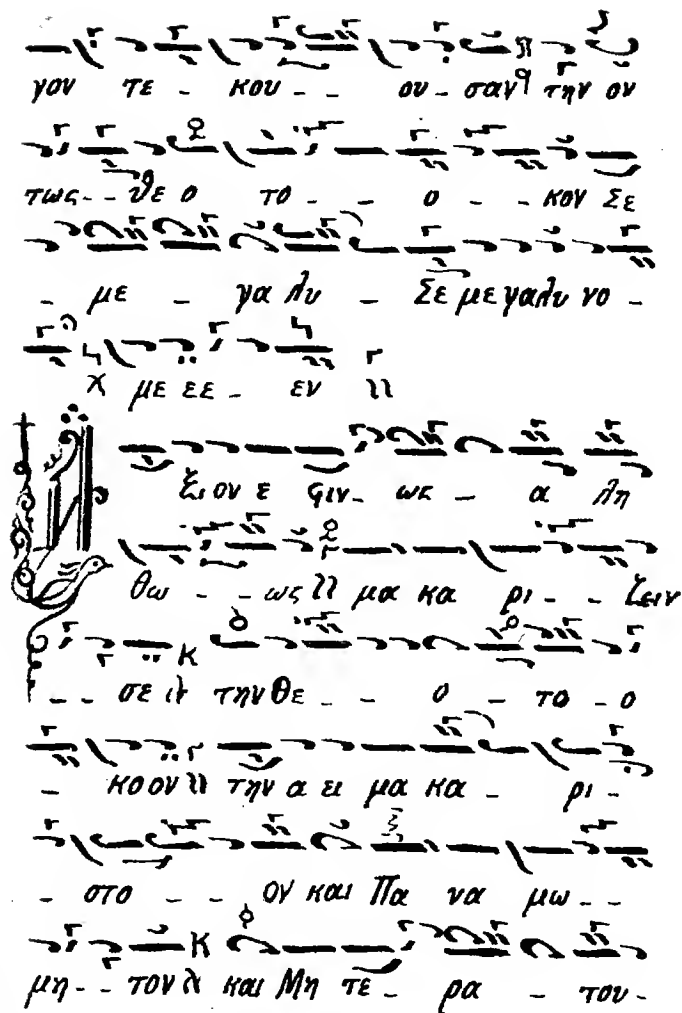 γον τε - κου - - ου - σαν την όν
τως - - θε ο το - - ο - - κον Σε
- με - γα λυ - Σε με γαλυ νο -
με εε - εν
ξι ον ε ςιν - ως - α λη
θω - - ως μα κα ρι - - ζειν
- - σε την θε - - ο - το - ο
- κο ον την α ει μα κα - ρι -
- στο - - ον και Πα να μω - -
μη - - τον και Μη τε - ρα - του -